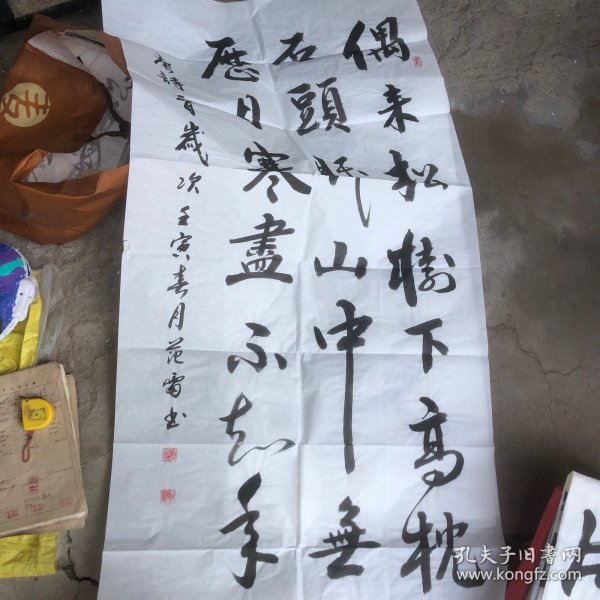 偶来松樹下高枕
石頭眠山中無
歷日寒盡不知年
唐詩一首歲次壬寅春月范雷书
孔夫子旧书网
www.kongfz.com